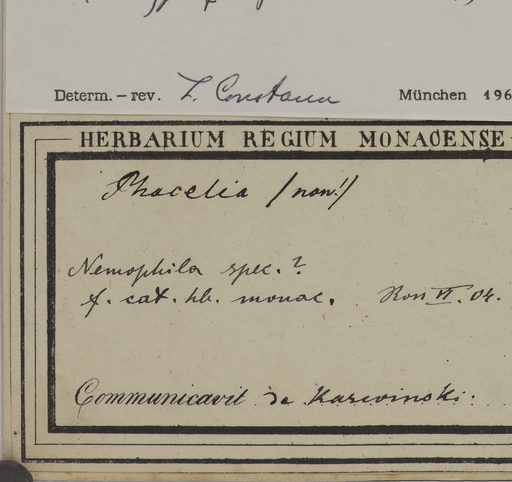 Determ. – rev. L. Constance München 196
HERBARIUM REGIUM MONACENSE
Phacelia (non!)
Nemophila spec.?
f. cat. hb. monac. Ross VI. 04.
Communicavit de Karwinski.